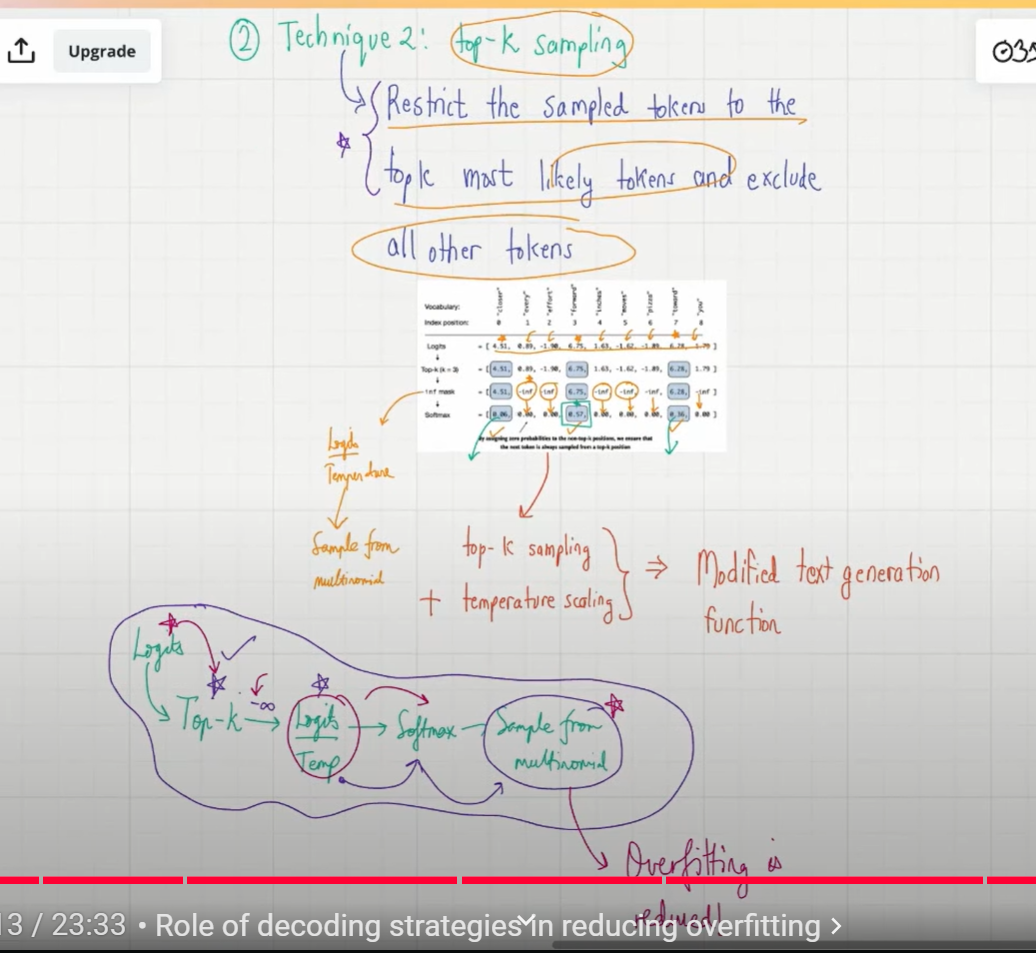 Upgrade
② Technique 2: top-k sampling
Restrict the sampled tokens to the
topk most likely tokens and exclude
all other tokens
Vocabulary: "closer" "every" "effort" "forward" "inches" "moves" "pizza" "toward" "you"
Index position: 0 1 2 3 4 5 6 7 8
Logits = [ 4.51, 0.89, -1.90, 6.75, 1.63, -1.62, -1.89, 6.28, 1.79 ]
Top-k (k = 3) = [ 4.51, 0.89, -1.90, 6.75, 1.63, -1.62, -1.89, 6.28, 1.79 ]
-inf mask = [ 4.51, -inf, -inf, 6.75, -inf, -inf, -inf, 6.28, -inf ]
Softmax = [ 0.06, 0.00, 0.00, 0.57, 0.00, 0.00, 0.00, 0.36, 0.00 ]
By assigning zero probabilities to the non-top-k positions, we ensure that
the next token is always sampled from a top-k position
Logits
Temperature
Sample from
multinomial
top-k sampling
+ temperature scaling
⇒ Modified text generation
function
Logits
Top-k
-∞
Logits
Temp
Softmax
Sample from
multinomial
Overfitting is
reduced!
13 / 23:33 • Role of decoding strategies in reducing overfitting >